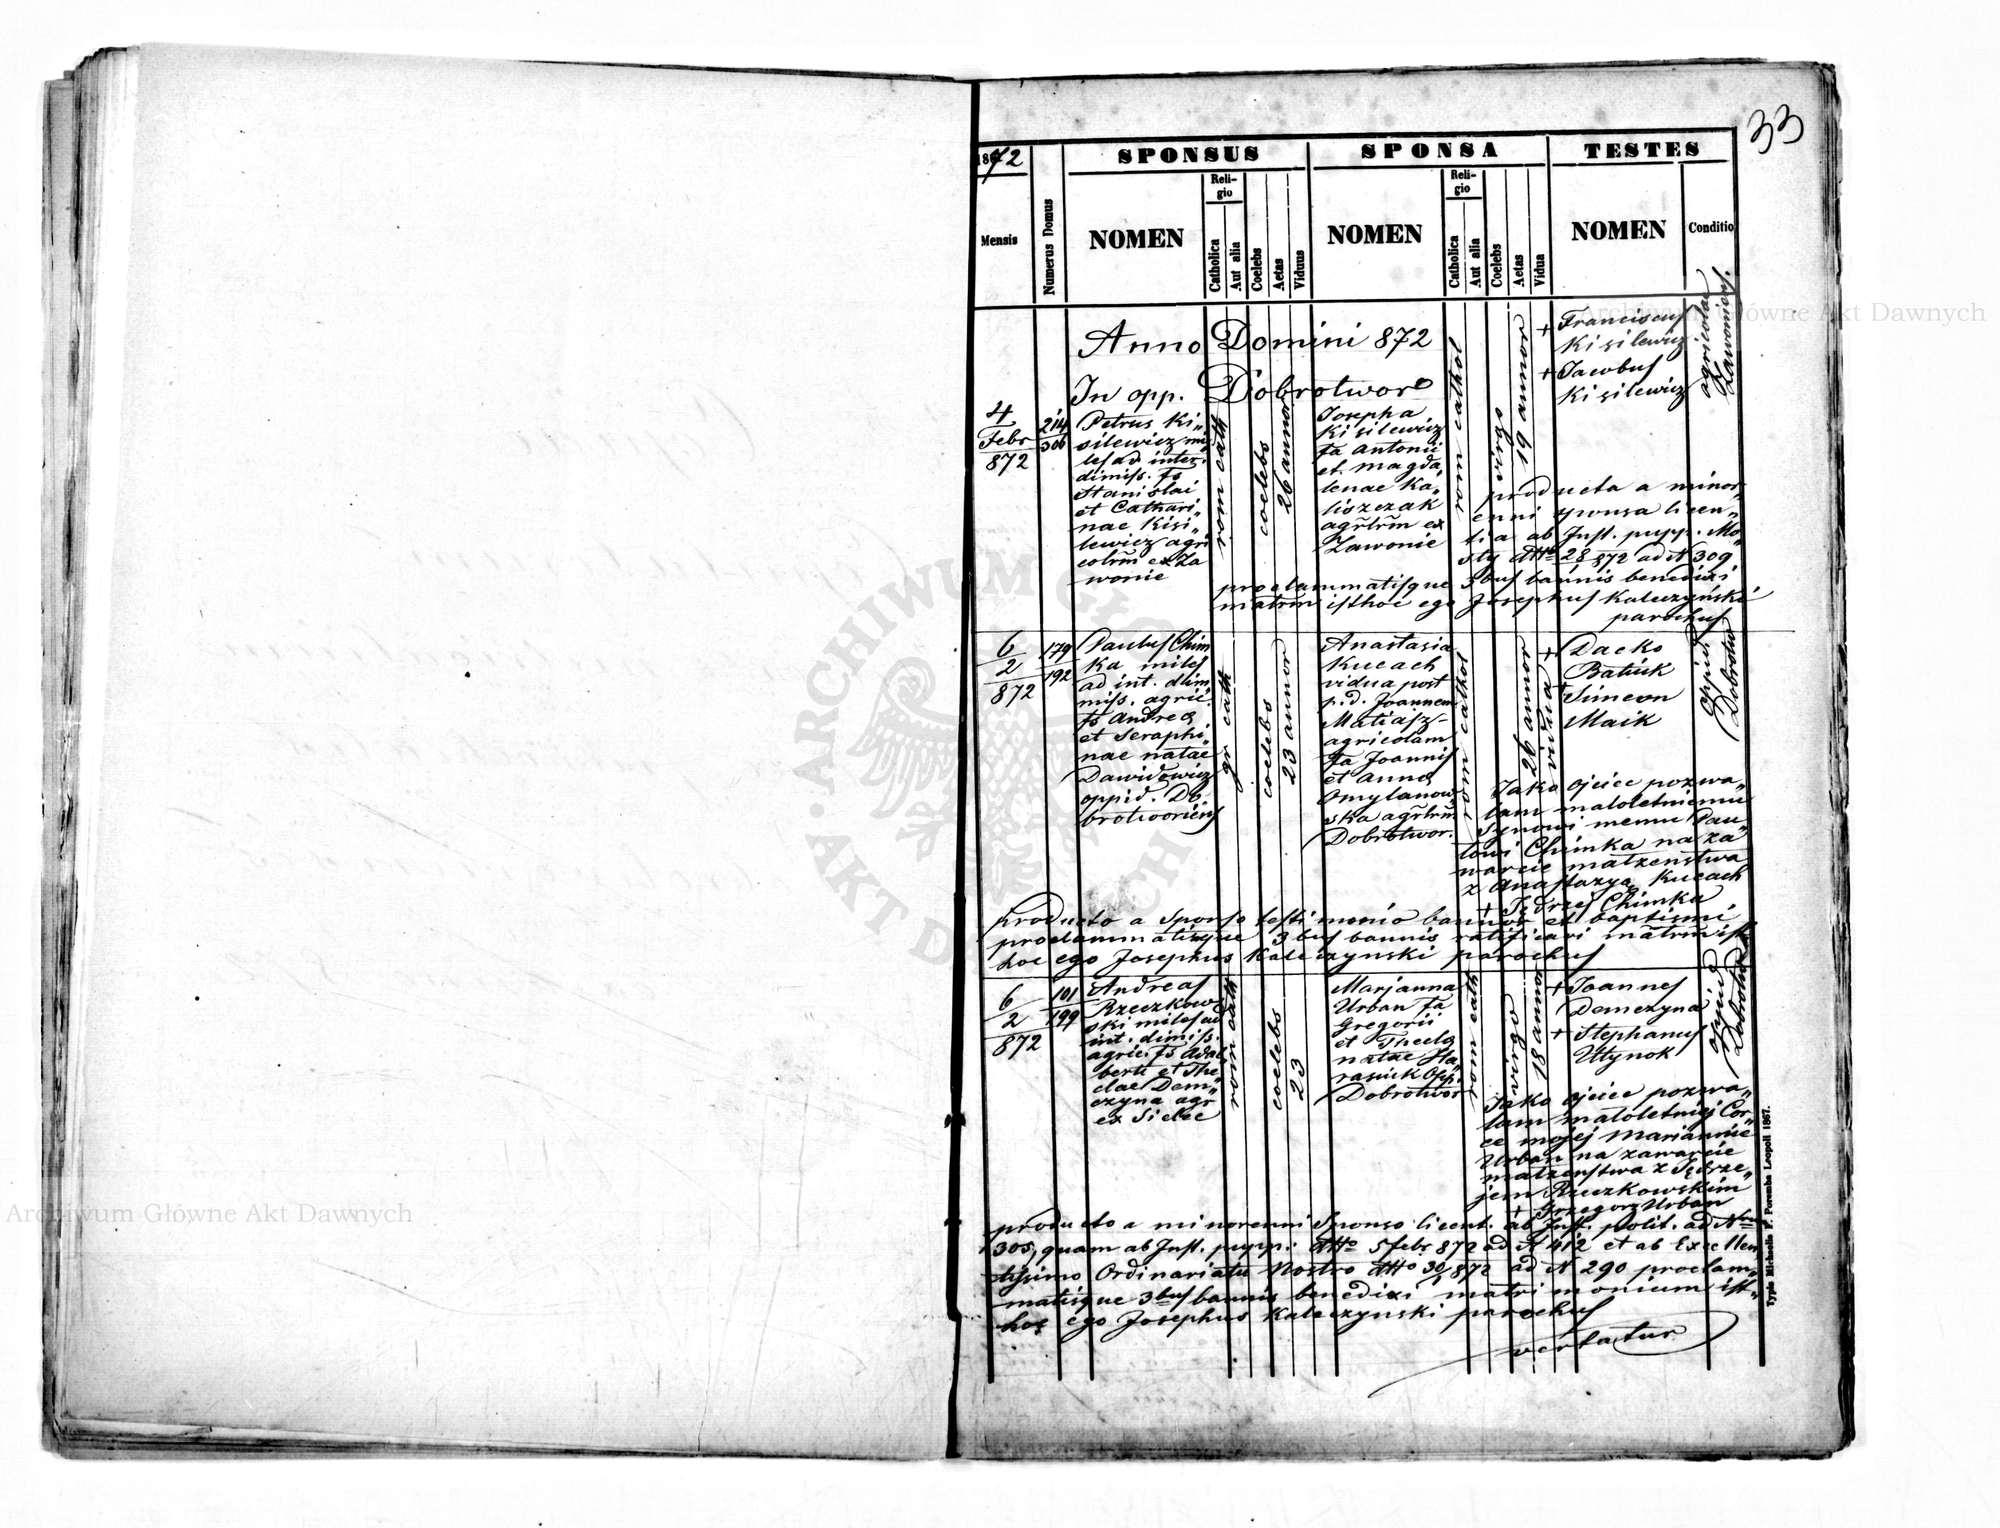 33
1872
SPONSUS
SPONSA
TESTES
Mensis
Numerus Domus
NOMEN
Religio
Catholica
Aut alia
Coelebs
Aetas
Viduus
NOMEN
Religio
Catholica
Aut alia
Coelebs
Aetas
Vidua
NOMEN
Conditio
Anno Domini 872
In opp. Dobrotwor
4
Febr
872
214
306
Petrus Ki„
silewicz mi„
les ad inter.
dimiss. fs
Stanislai
et Cathari„
nae Kisi„
lewicz agri
colrm ex Za
wonie
rom cath
coelebs
26 annor
Josepha
Kisilewicz
fa Antonii
et Magda„
lenae Ka„
liszczak
agrlrm ex
Zawonie
rom cathol
virgo
19 annor
+ Franciscus
Kisilewicz
+ Jacobus
Kisilewicz
agricolae
Zawoniens.
producta a minor„
enni sponsa licen„
tia ab Just. pupp. Mo„
sty dtto 28/872 ad N 309
proclammatisque 3bus bannis benedixi
matrm isthoc ego Josephus Kaleczynski
parochus
6
2
872
179
192
Paulus Chim
ka miles
ad int. dim
miss. agric.
fs Andrea
et Seraphi„
nae natae
Dawidowicz
oppid. Do„
brotworiens
gr cath
coelebs
23 annor
Anastasia
Kucach
vidua post
p.d. Joannem
Matiasz
agricolam
fa Joannis
et Anna
Omylanow„
ska agrlrm
Dobrotwor.
rom cathol
26 annor
vidua
+ Dacko
Batiuk
+ Simeon
Maik
oppid
Dobrotwor
Jako ojciec pozwa„
lam małoletniemu
synowi memu Pau„
lowi Chimka na za
warcie małzenstwa
z Anastazyą Kucach
+ Jędrzej Chimka
producto a sponso testimonio bannor et baptismi
proclammatisque 3bus bannis ratificavi matrm ist
hoc ego Josephus Kaleczynski parochus
6
2
872
101
199
Andreas
Rzeczkow
ski miles ad
int. dimiss.
agric. fs Adal„
berti et The„
clae Dem„
czyna agr
ex Sielec
rom cath
coelebs
23
Marjanna
Urban fa
Gregorii
et Thecla
natae Ha„
rasiuk opp.
Dobrotwor
rom cath
virgo
18 annor
+ Joannes
Demczyna
+ Stephanus
Utynok
oppid
Dobrotwor
Jako ojciec pozwa„
lam małoletniej Cor„
ce mojej Mariannie
Urban na zawarcie
małzenstwa z Jędrze„
jem Rzeczkowskim
+ Grzegorz Urban
producto a minorenni sponso licent. ab Just. polit. ad Nrm
305, quam ab Just. pupp. dtto 5 febr 872 ad N 412 et ab Excellen
tissimo Ordinariatu Nostro dtto 30/1 872 ad N 290 proclam„
matisque 3bus bannis benedixi matrimonium ist„
hoc ego Josephus Kaleczynski parochus
vertatur
Typis Michaelis F. Poremba Leopoli 1867.
Archiwum Główne Akt Dawnych
Archiwum Główne Akt Dawnych
ARCHIWUM GŁÓWNE AKT DAWNYCH